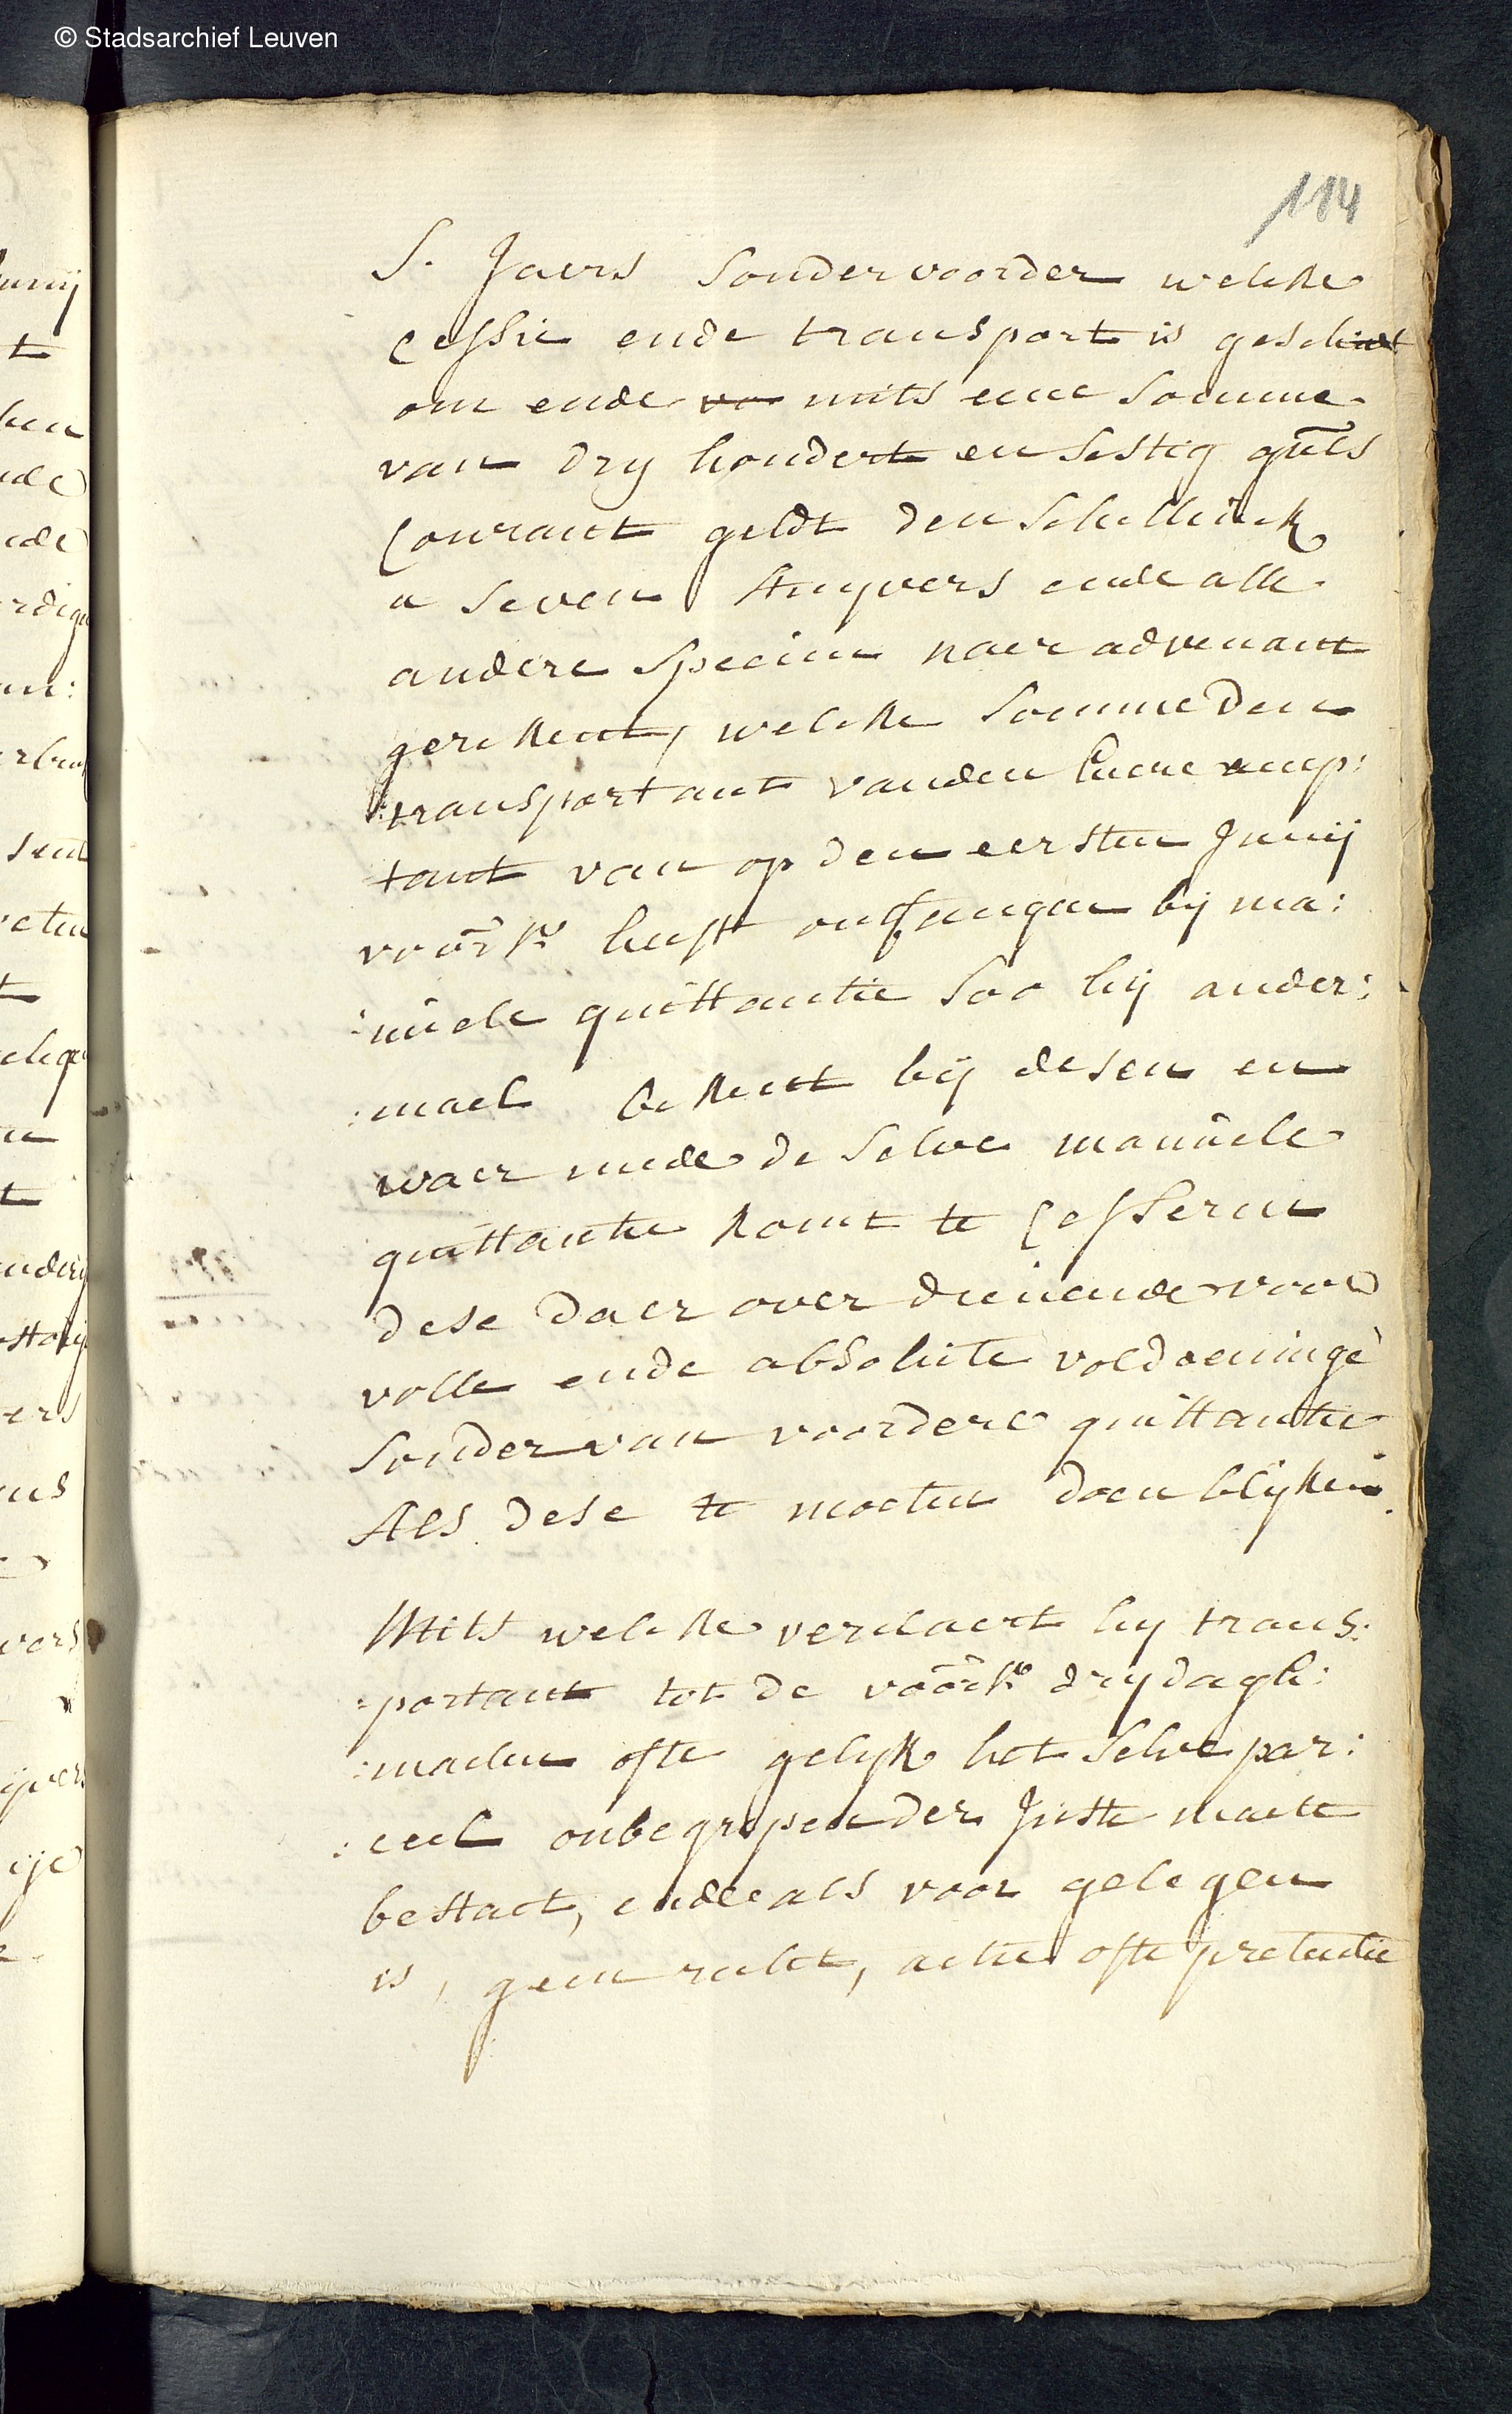 © Stadsarchief Leuven
114
S. Jaers sonder voorder welcke
cessie ende transport is geschiet
om ende vo mits eene somme
van dry hondert en sestig guls
Courant geldt den schellinck
a seven stuyvers ende alle
andere specien naer advenant
gerekent, welcke somme den
transportant vanden heere accep:
tant van op den eersten Junij
voors: heeft ontfangen bij ma:
:nuele quittantie soo hij ander:
:mael bekent bij desen en
waer mede de selve manuele
quittantie komt te cesseren
dese daer over dienende voor
volle ende absolute voldoeninge
sonder van voordere quittantie
Als dese te moeten doen blijken.
Mits welcke verclaert hy trans:
:portant tot de voors: dry dagh:
:maelen ofte gelyk het selve par:
:ceel onbegrepen der juste maete
bestaet, ende als voor gelegen
is, geen recht, actie ofte pretentie